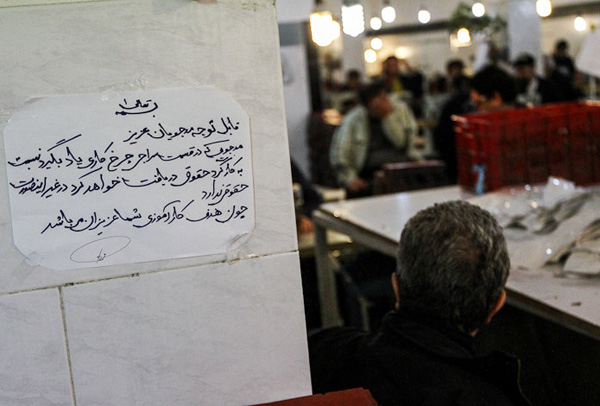 بسمه تعالی
قابل توجه مددجویان عزیز
مددجویی که در قسمت سراجی چرخ کاری یاد بگیرد نسبت
به کارکرد حقوق دریافت خواهد کرد در غیر اینصورت
حقوق ندارد
چون هدف کارآموزی شما عزیزان می باشد